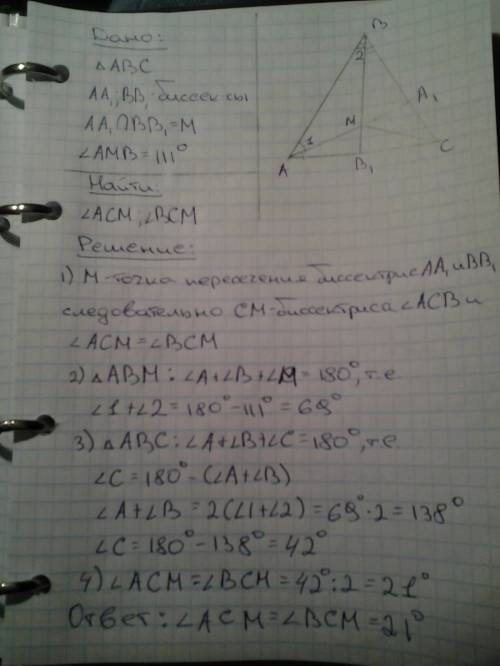 Дано:
△ABC
AA₁, BB₁-биссек-сы
AA₁∩BB₁=M
∠AMB=111°
Найти:
∠ACM, ∠BCM
Решение:
1) M-точка пересечения биссектрис AA₁ и BB₁
следовательно CM-биссектриса ∠ACB и
∠ACM=∠BCM
2) △ABM: ∠A+∠B+∠M=180°, т.е.
∠1+∠2=180°-111°=69°
3) △ABC: ∠A+∠B+∠C=180°, т.е.
∠C=180°-(∠A+∠B)
∠A+∠B=2(∠1+∠2)=69°·2=138°
∠C=180°-138°=42°
4) ∠ACM=∠BCM=42°:2=21°
Ответ: ∠ACM=∠BCM=21°
B
2
A₁
M
1
C
A
B₁